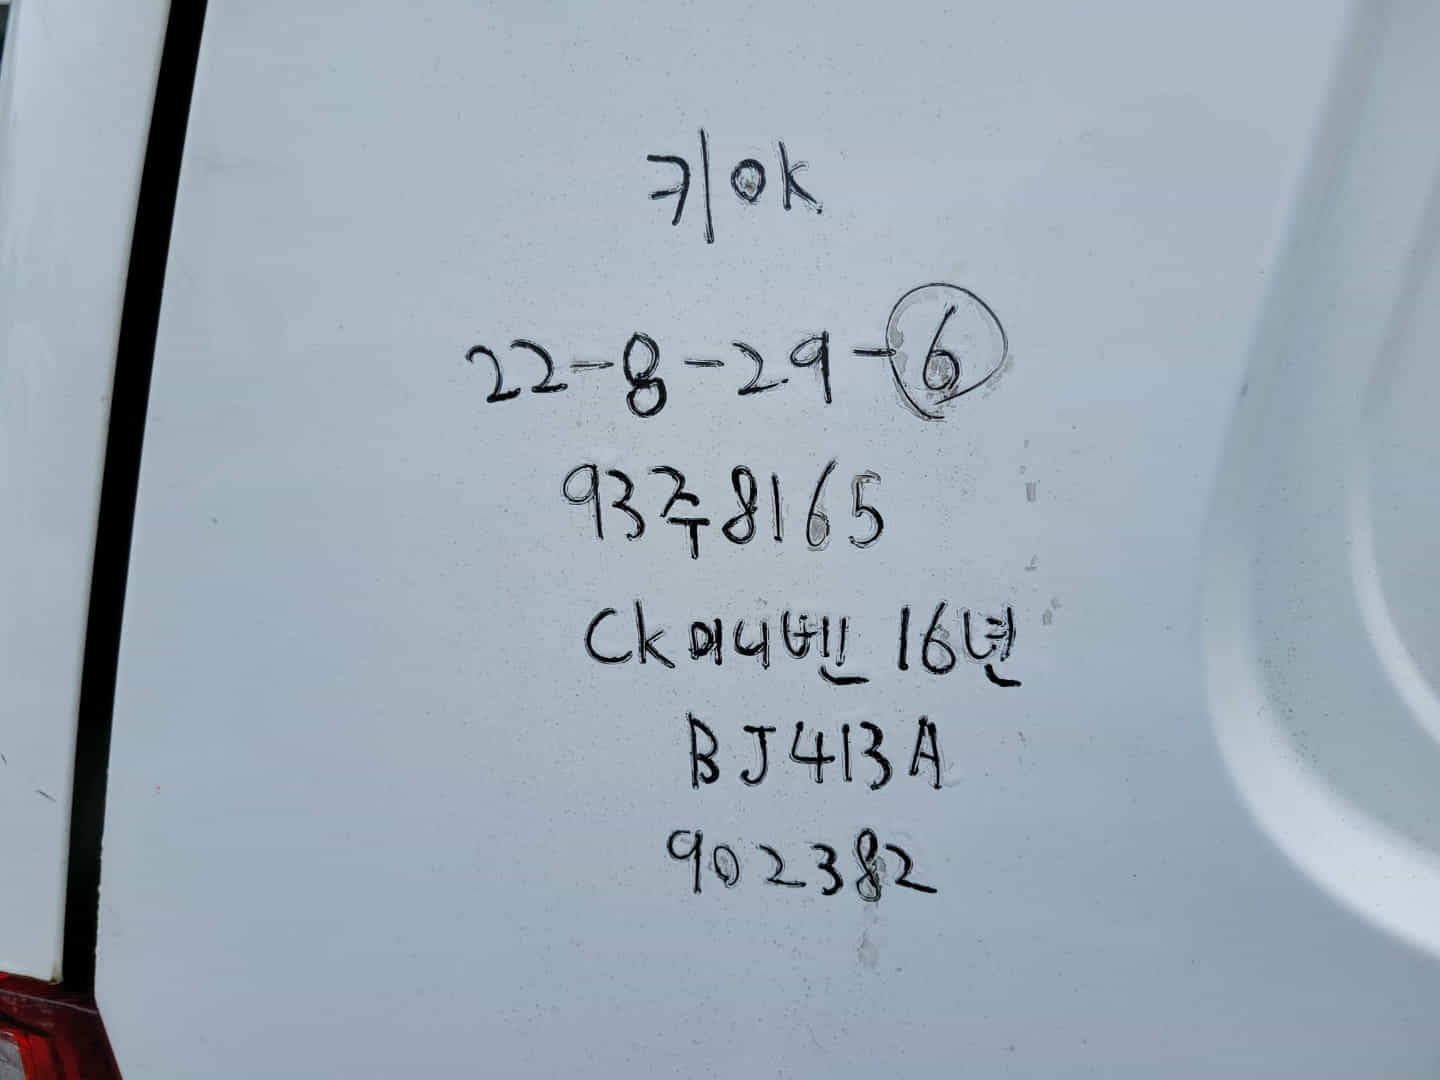 키OK
22-8-29-6
93주8165
CK미니벤 16년
BJ413A
902382